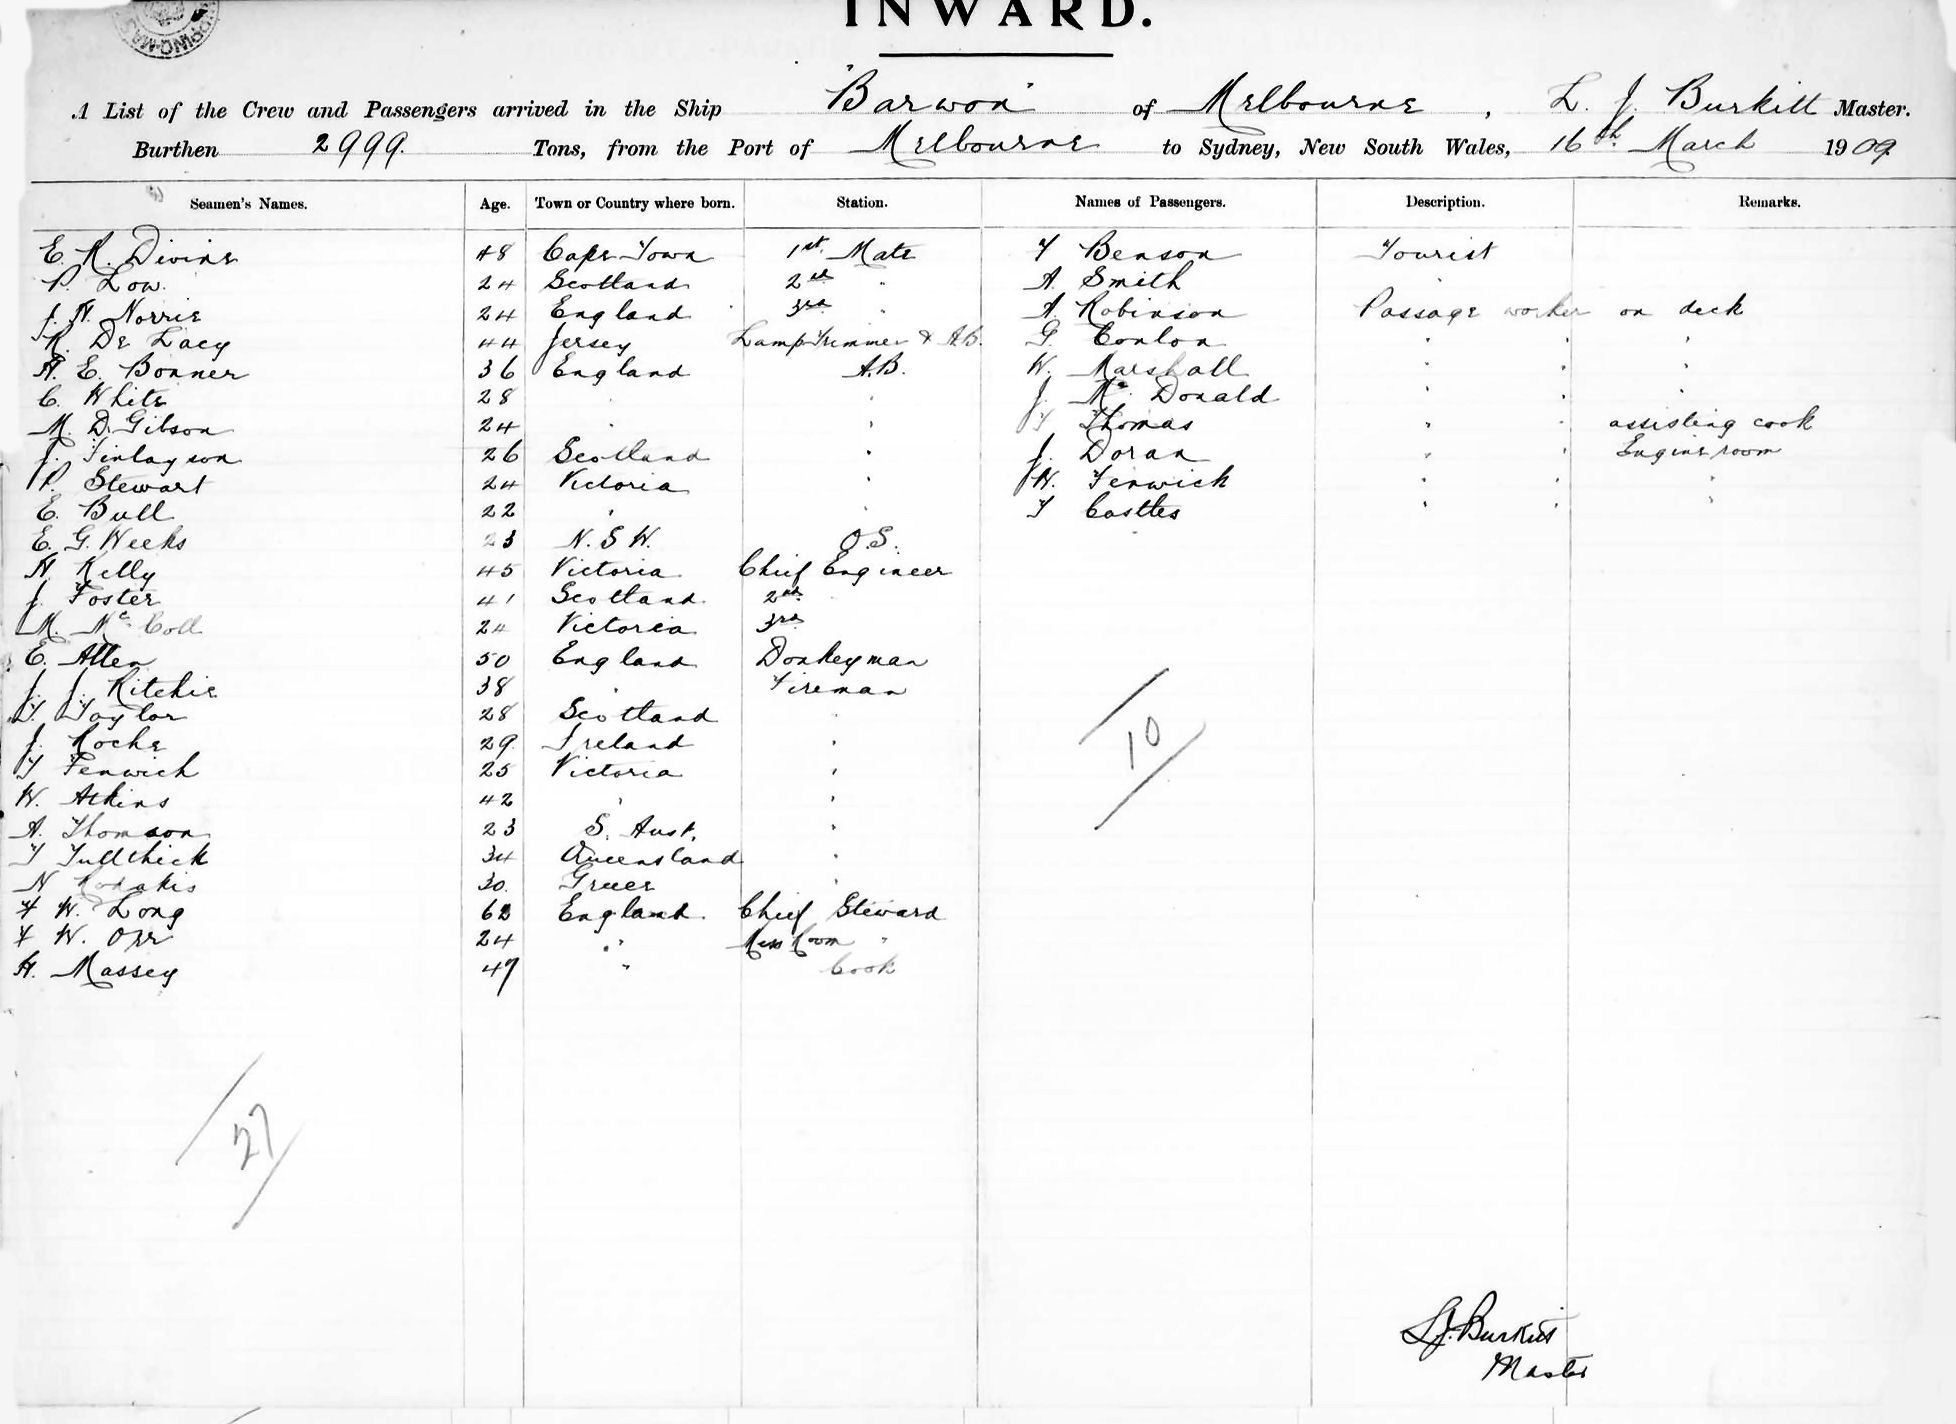 INWARD.
A List of the Crew and Passengers arrived in the Ship "Barwon" of Melbourne, L. J. Burkitt Master.
Burthen 2999. Tons, from the Port of Melbourne to Sydney, New South Wales, 16th March 1909.
Seamen's Names. Age. Town or Country where born. Station. Names of Passengers. Description. Remarks.
E. R. Divine 48 Cape Town 1st Mate F Benson Tourist
P. Low. 24 Scotland 2nd " A. Smith "
J. H. Norrie 24 England 3rd " A. Robinson Passage worker on deck
R. De Lacy 44 Jersey Lamp Trimmer & A.B. G. Conlon " " "
A. E. Bonner 36 England A.B. W. Marshall " " "
C. White 28 " " J. Mc Donald " " "
M. D. Gibson 24 " " T Thomas " " assisting cook
J. Finlayson 26 Scotland " J. Doran " " Engine room
P. Stewart 24 Victoria " W. Fenwick " " "
E. Bull 22 " " T Castles " " "
E. G. Weeks 23 N.S.W. O.S.
H Kelly 45 Victoria Chief Engineer
J. Foster 41 Scotland 2nd "
M. Mc Coll 24 Victoria 3rd
E. Allen 50 England Donkeyman
J. J. Ritchie 38 " Fireman
T. Taylor 28 Scotland "
J. Roche 29. Ireland "
T Fenwick 25 Victoria "
W. Atkins 42 " "
A. Thomson 23 S. Aust. "
T 34 Queensland "
N 30. Greece "
F W. Long 62 England Chief Steward
F W. Orr 24 " Mess Room "
H. Massey 47 " Cook
10
27
L.J. Burkitt
Master